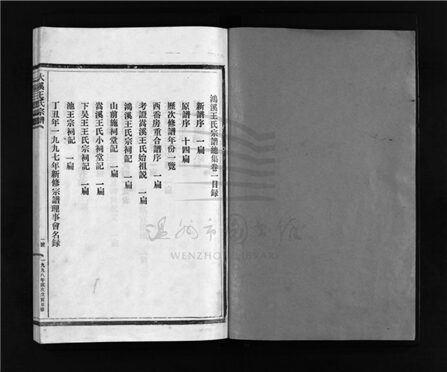 鴻溪王氏宗譜總集卷一目錄
新譜序 一扁
原譜序 十四扁
歷次修譜年份一覽
西畬房重合譜序 一扁
考證嵩溪王氏始祖說 一扁
鴻溪王氏宗祠記 一扁
山前施祠堂記 一扁
嵩溪王氏小祠堂記 一扁
下吳王氏宗祠記 一扁
池王宗祠記 一扁
丁丑年一九九七年新修宗譜理事會名錄
溪王氏宗譜
一號
一九九八年
温州市图书馆
WENZHOU LIBRARY